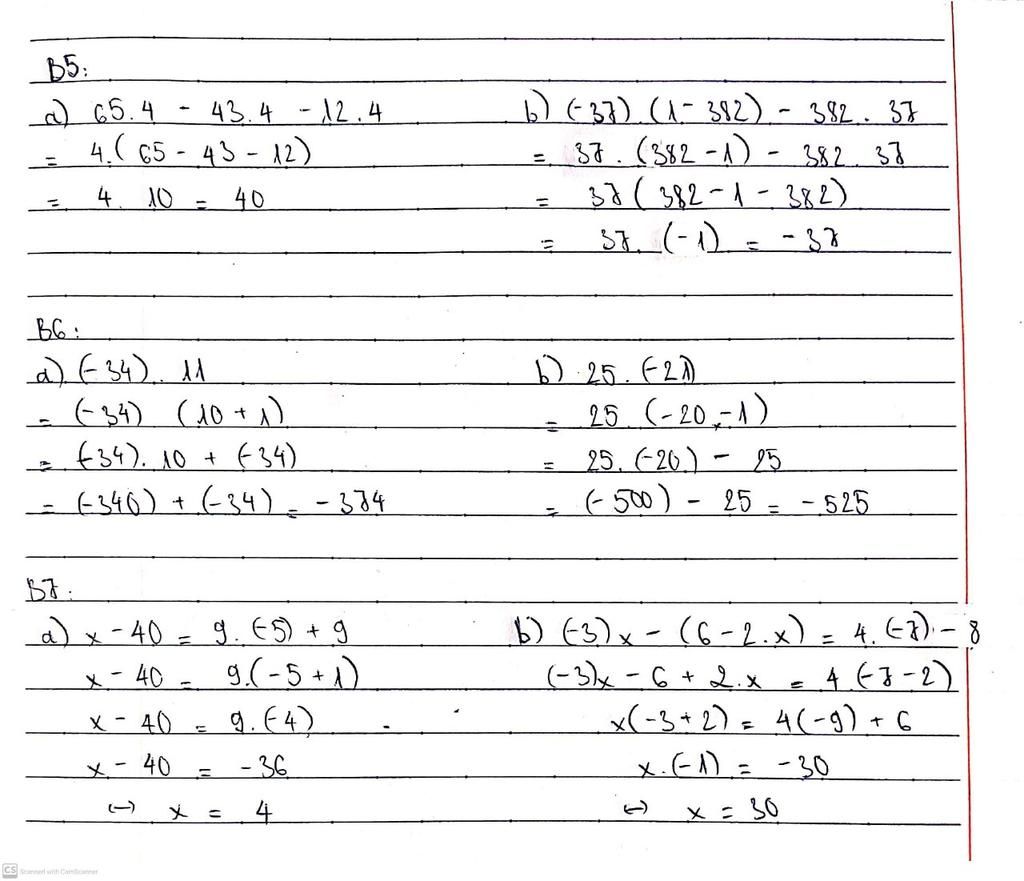 B5:
a) 65.4 - 43.4 - 12.4
= 4.( 65 - 43 - 12)
= 4. 10 = 40
b) (-37).(1 - 382) - 382. 37
= 37. (382 - 1) - 382. 37
= 37( 382 - 1 - 382)
= 37. (-1) = -37
B6:
a) (-34). 11
= (-34) (10 + 1)
= (-34). 10 + (-34)
= (-340) + (-34) = -374
b) 25. (-21)
= 25. (-20 - 1)
= 25. (-20) - 25
= (-500) - 25 = -525
B7:
a) x - 40 = 9. (-5) + 9
x - 40 = 9.(-5 + 1)
x - 40 = 9. (-4)
x - 40 = -36
↔ x = 4
b) (-3)x - (6 - 2.x) = 4. (-7) - 8
(-3)x - 6 + 2.x = 4 (-7 - 2)
x(-3 + 2) = 4(-9) + 6
x. (-1) = -30
↔ x = 30
CS Scanned with CamScanner